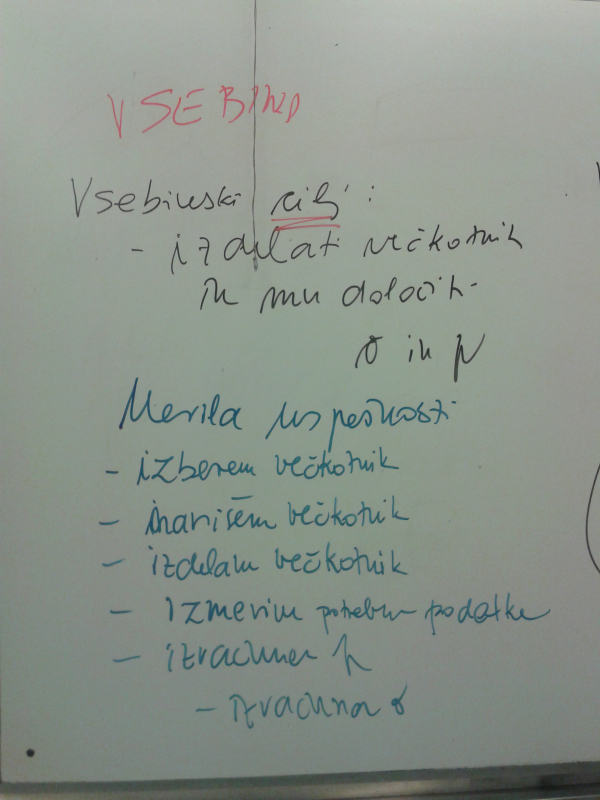 VSEBINA
Vsebinski cilj:
- izdelati večkotnik
in mu določiti
o in p
Merila uspešnosti
- izberem večkotnik
- narišem večkotnik
- izdelam večkotnik
- izmerim potrebne podatke
- izračunam p
- izračunam o